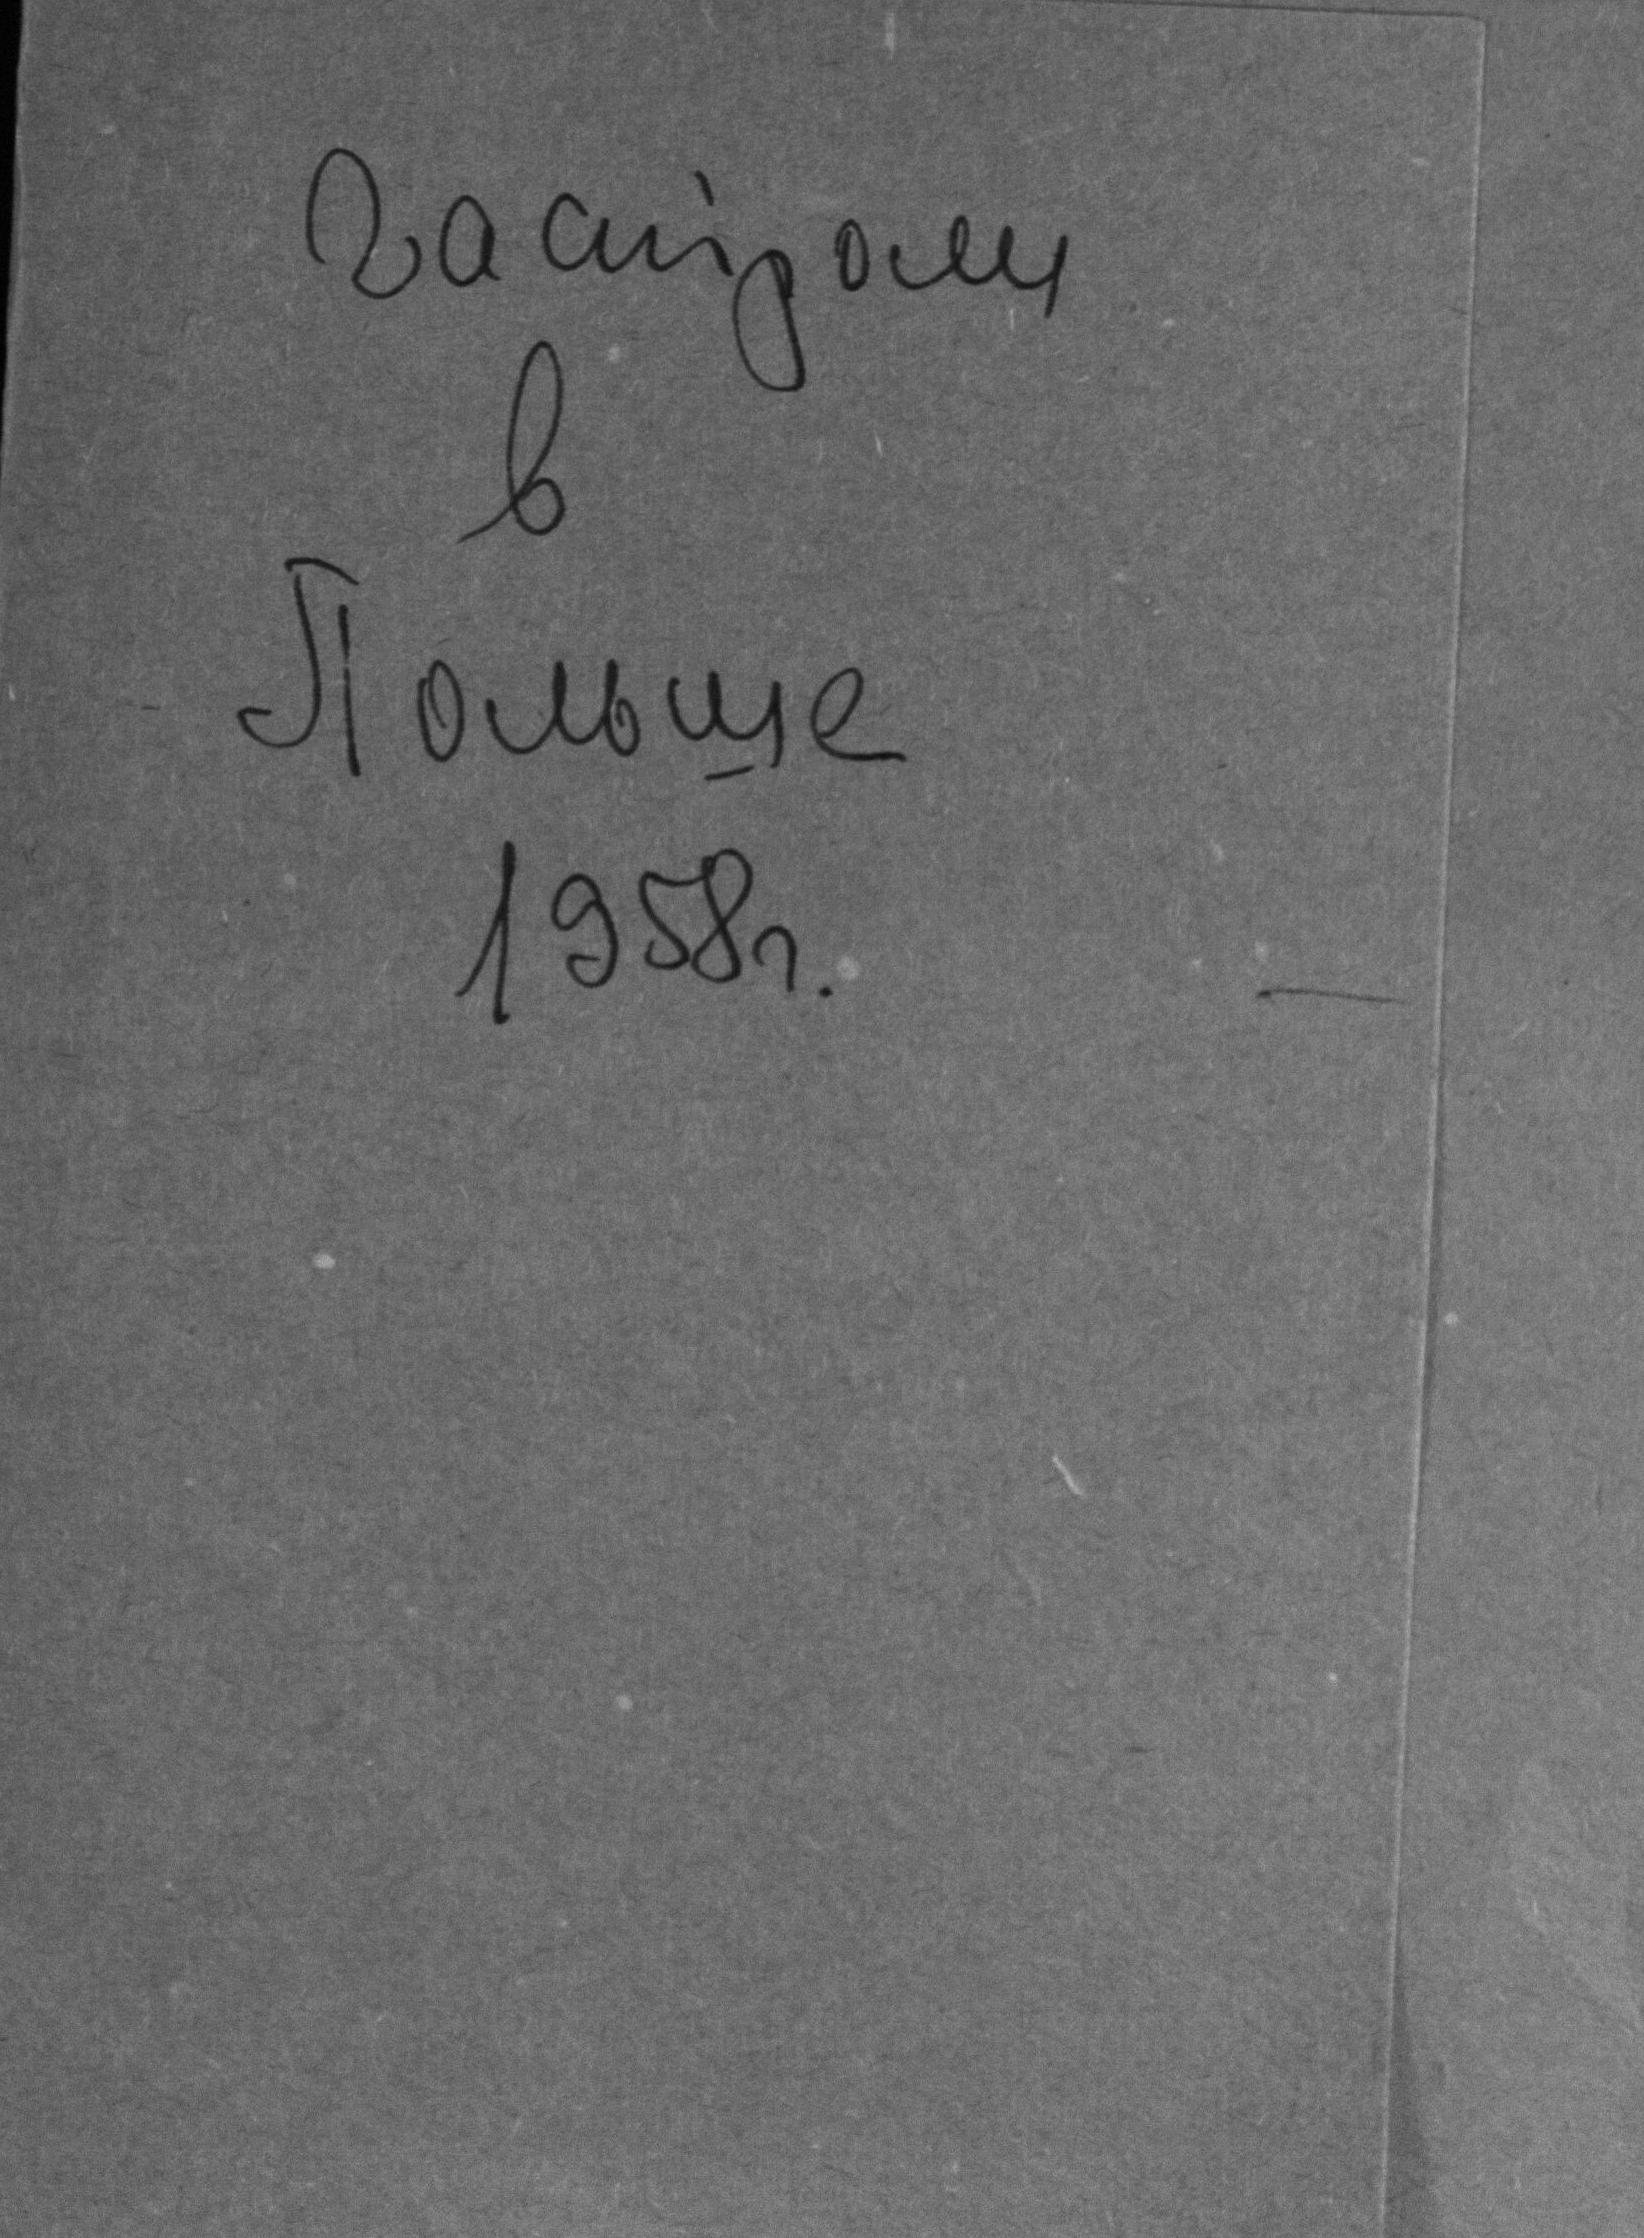 Гастроли
в
Польше
1958г.